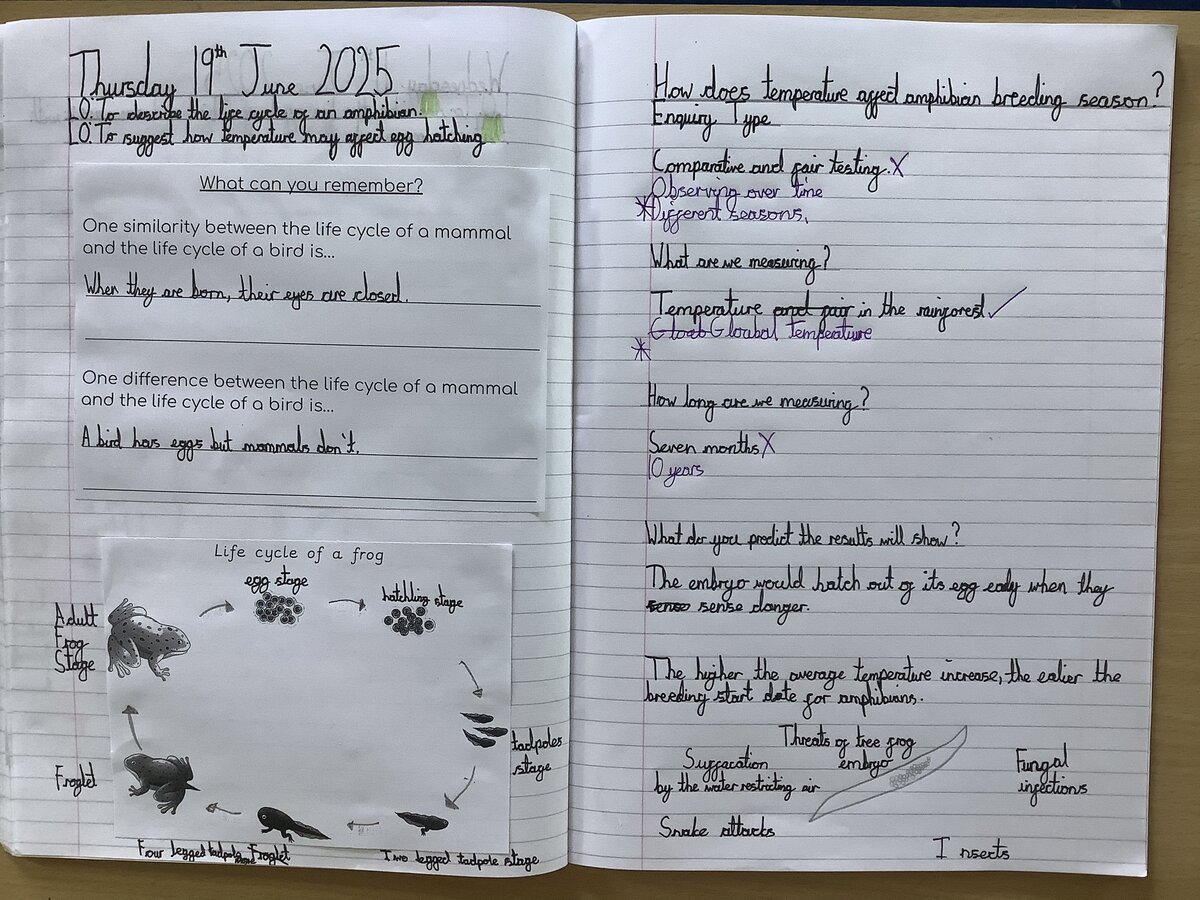 Thursday 19th June 2025
LO: To describe the life cycle of an amphibian.
LO: To suggest how temperature may affect egg hatching
What can you remember?
One similarity between the life cycle of a mammal
and the life cycle of a bird is...
When they are born, their eyes are closed.
One difference between the life cycle of a mammal
and the life cycle of a bird is...
A bird has eggs but mammals don't.
Life cycle of a frog
egg stage
hatchling stage
Adult
Frog
Stage
tadpoles
stage
Froglet
Four legged tadpole Froglet
Two legged tadpole stage
How does temperature affect amphibian breeding season?
Enquiry Type
Comparative and fair testing. X
Observing over time
*Different seasons.
What are we measuring?
Temperature and fair in the rainforest ✓
Gloab Gloubal temperature
*
How long are we measuring?
Seven months X
10 years
What do you predict the results will show?
The embryo would hatch out of its egg early when they
sense sense danger.
The higher the average temperature increase, the ealier the
breeding start date for amphibians.
Threats of tree frog
embryo
Suffacation
by the water restricting air
Fungal
infections
Snake attacks
Insects